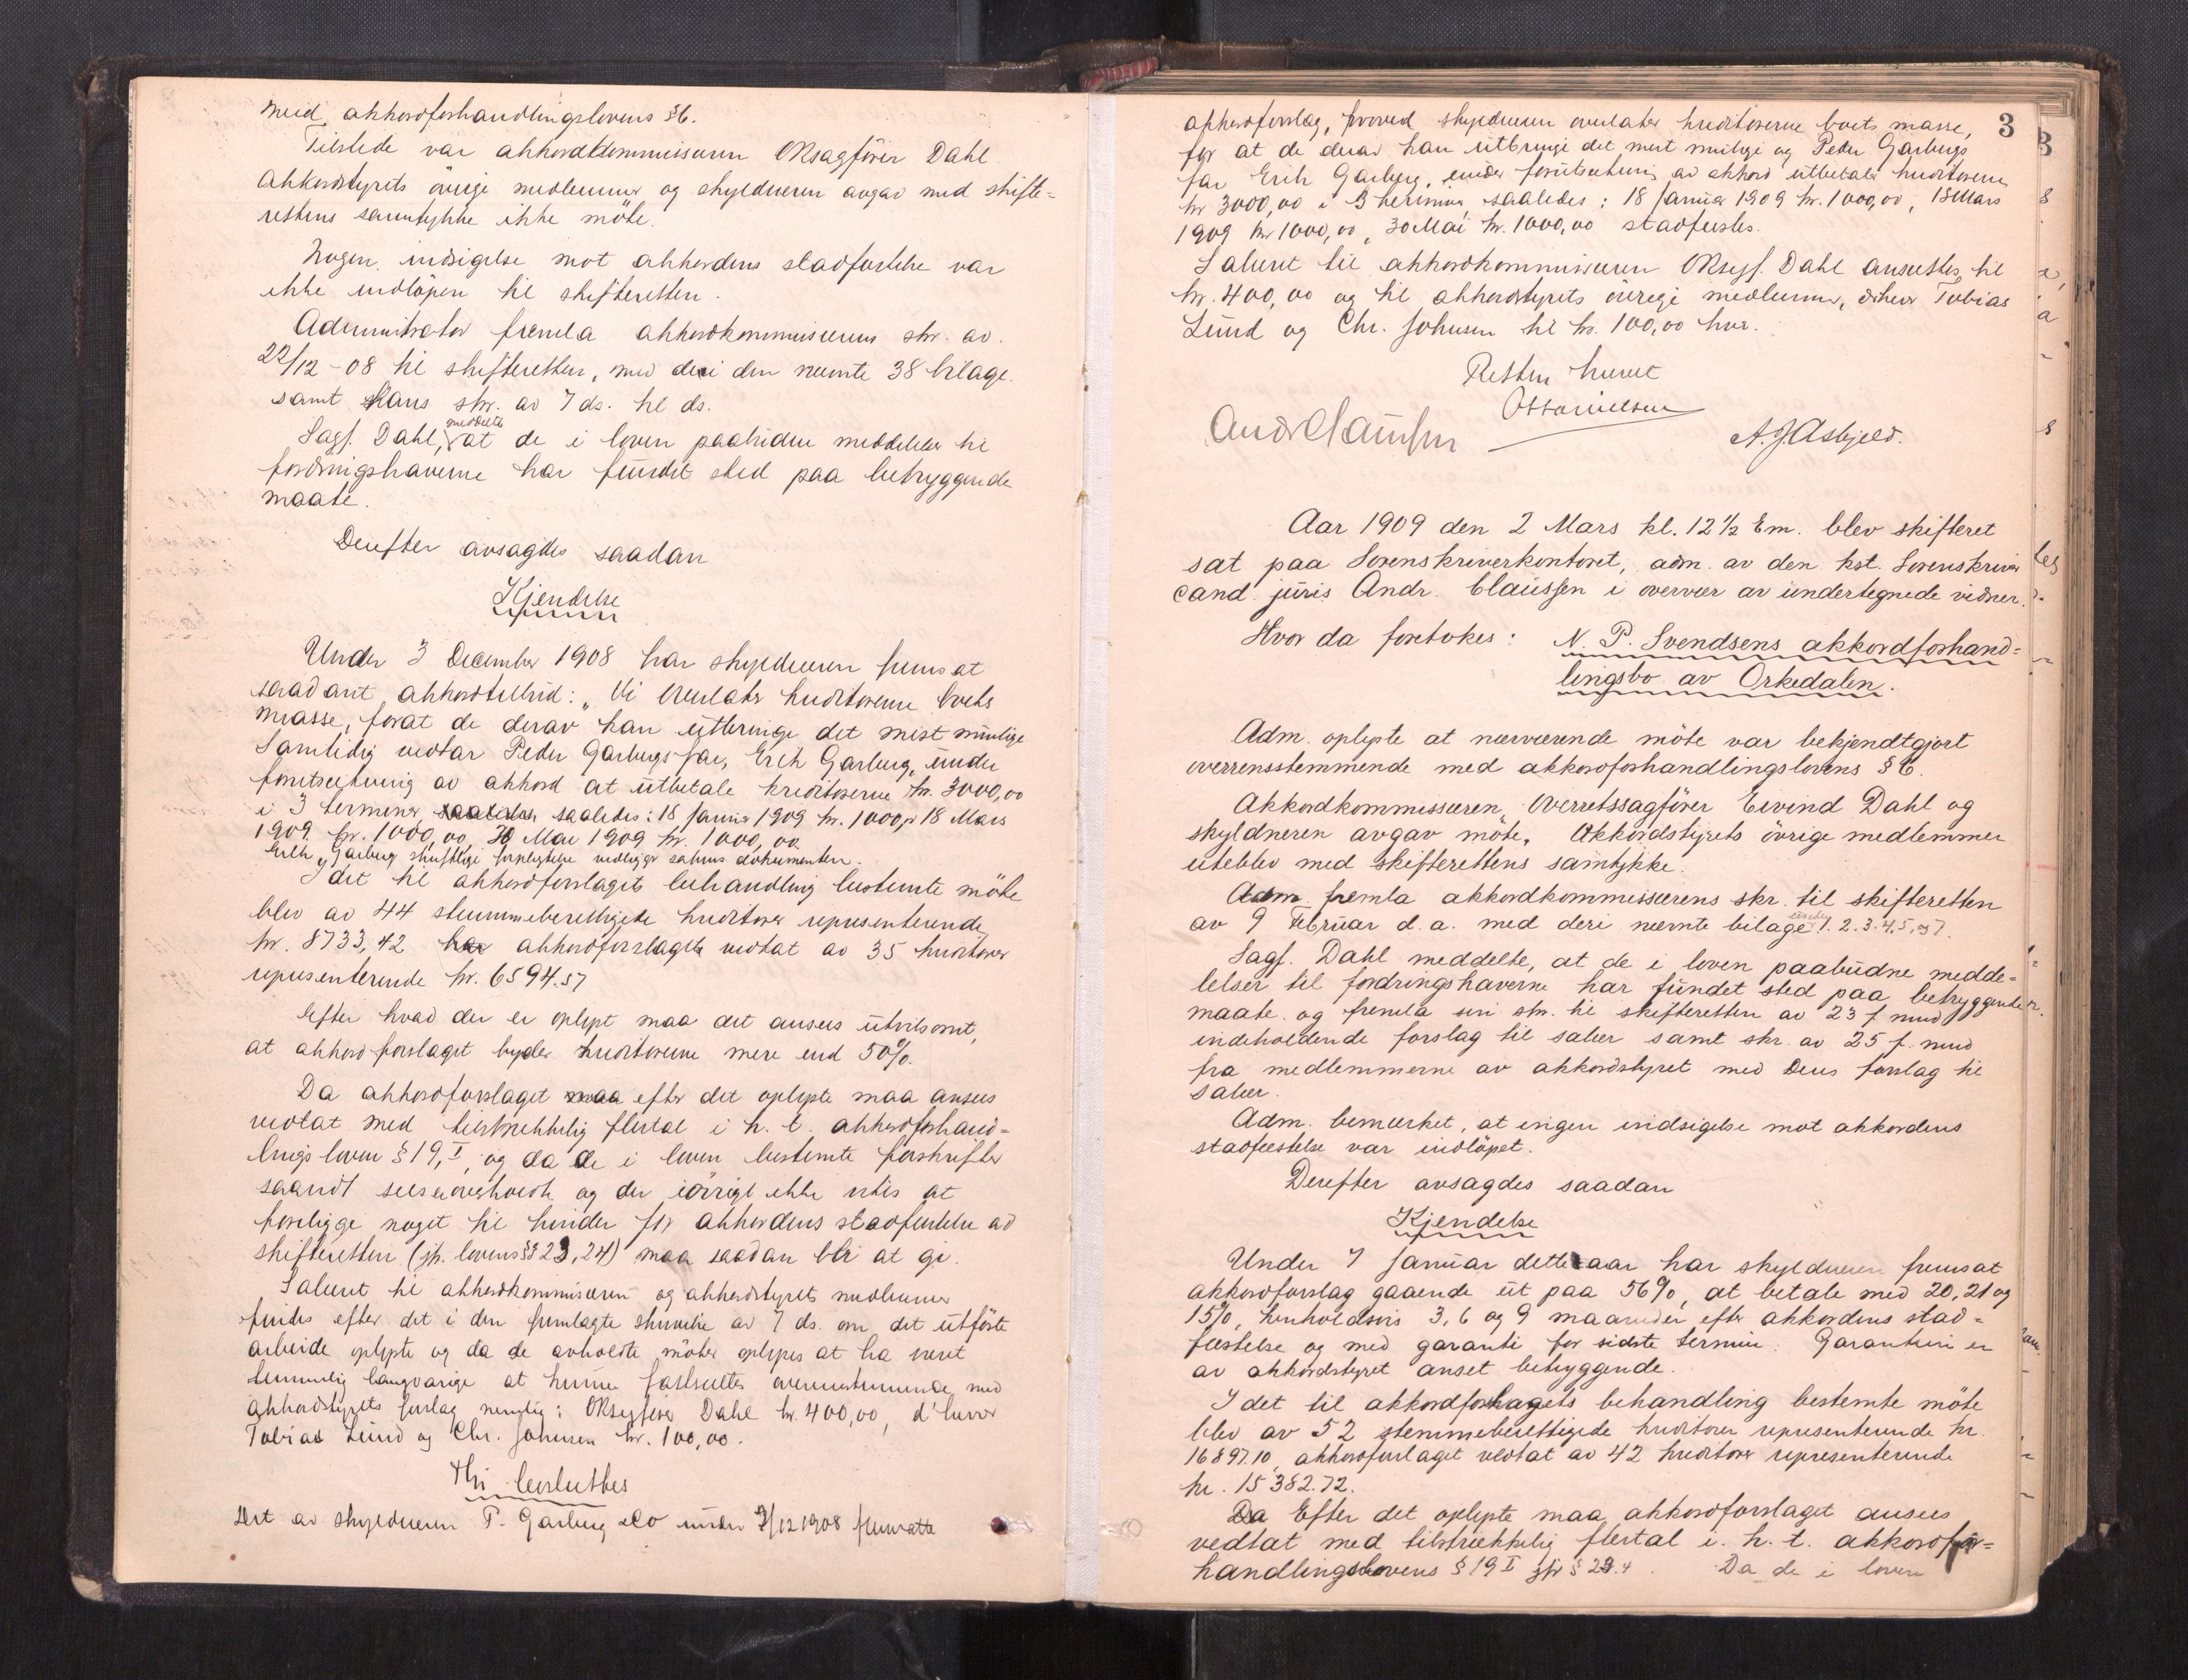 med akkordforhandlingslovens § 6.
Tilstede var akkordkommissæren ORsagfører Dahl.
Akkordstyrets övrige medlemmer og skyldneren avgav med skifte=
rettens samtykke ikke möte.
Nogen indsigelse mot akkordens stadfæstelse var
ikke indlöpen til skifteretten.
Administrator fremla akkordkommissærens skr. av
22/12-08 til skifteretten, med deri den nævnte 38 bilage.
samt Hans skr. av 7 ds. til ds.
Sagf. Dahl, meddelte at de i loven paabudne meddelelser til
fordringshaverne har fundet sted paa betryggende
maate.
Derefter avsagdes saadan
Kjendelse
Under 3 December 1908 har skyldneren fremsat
saadant akkordtilbud: „Vi overlater kreditorerne boets
masse, forat de derav kan utbringe det mest mulige
Samtidig vedtar Peder Garbergs far, Erik Garberg, under
forutsætning av akkord at utbetale kreditorerne kr. 3000,00
i 3 terminer saaledes: 18 Januar 1909 kr. 1000, 18 Mars
1909 kr. 1000,00, 30 Mai 1909 kr. 1000,00
Erik Garberg skriftlige forpligtelse vedligger sakens dokumenter.
I det til akkordforslagets behandling bestemte möte
blev av 44 stemmeberettigede kreditorer representerende
kr. 8733,42 akkordforslaget vedtat av 35 kreditorer
representerende kr. 6594.57
Efter hvad der er oplyst maa det ansees utvilsomt,
at akkordforslaget byder kreditorerne mere end 50%.
Da akkordforslaget efter det oplyste maa ansees
vedtat med tilstrækkelig flertal i h. t. akkordforhand=
lingsloven § 19,I, og da de i loven bestemte forskrifter
saavidt sees er overholdt og der iövrigt ikke vites at
foreligge noget til hinder for akkordens stadfæstelse av
skifteretten (jfr. lovens §§ 23, 24) maa saadan bli at gi.
Salæret til akkordkommissæren og akkordstyrets medlemmer
findes efter det i den fremlagte skrivelse av 7 ds. om det utförte
arbeide oplyste og da de avholdte möter oplyses at ha været
temmelig langvarige at kunne fastsættes overensstemmende med
akkordstyrets forslag nemlig: ORsagförer Dahl kr. 400,00, d'herrer
Tobias Lund og Chr. Johnsen kr. 100,00.
Thi besluttes
Det av skyldneren P. Garberg & Co under 3/12 1908 fremsatte
3
akkordforslag, hvorved skyldneren overlater kreditorerne boets masse,
for at de derav kan utbringe det mest mulige og Peder Garbergs
far Erik Garberg, under forutsætning av akkord utbetaler kreditorerne
kr 3000,00 i 3 terminer saaledes: 18 Januar 1909 kr. 1000,00, 18 Mars
1909 kr 1000,00, 30 Mai kr. 1000,00 stadfæstes.
Salæret til akkordkommissæren ORsagf. Dahl ansættes til
kr. 400,00 og til akkordstyrets övrige medlemmer, d'herr Tobias
Lund og Chr. Johnsen til kr. 100,00 hver.
Retten hævet
Otto Nielsen
Andr Claussen
A. J. Asbjeld.
Aar 1909 den 2 Mars kl. 12 1/2 Em. blev skifteret
sat paa Sorenskriverkontoret, adm. av den kst. Sorenskriver
cand. juris Andr. Claussen i overvær av undertegnede vidner.
Hvor da foretokes: N. P. Svendsens akkordforhand=
lingsbo av Orkedalen.
Adm. oplyste at nærværende möte var bekjendtgjort
overrensstemmende med akkordforhandlingslovens § 6.
Akkordkommissæren, Overretssagförer Eivind Dahl og
skyldneren avgav möte. Akkordstyrets övrige medlemmer
uteblev med skifterettens samtykke.
Adm fremla akkordkommissærens skr. til skifteretten
av 9 Februar d. a. med deri nævnte bilage 1. 2. 3. 4. 5. og 7.
Sagf. Dahl meddelte, at de i loven paabudne medde=
lelser til fordringshaverne har fundet sted paa betryggende
maate og fremla sin skr. til skifteretten av 23 f. mnd
indeholdende forslag til salær samt skr. av 25 f. mnd
fra medlemmerne av akkordstyret med Deres forslag til
salær.
Adm. bemærket, at ingen indsigelse mot akkordens
stadfæstelse var indlöpet.
Derefter avsagdes saadan
Kjendelse
Under 7 Januar dette aar har skyldneren fremsat
akkordforslag gaaende ut paa 56%, at betale med 20, 21 og
15%, henholdsvis 3, 6 og 9 maaneder efter akkordens stad=
fæstelse og med garanti for sidste termin. Garantien er
av akkordstyret anset betryggende.
I det til akkordforslagets behandling bestemte möte
blev av 52 stemmeberettigede kreditorer representerende kr.
16897.10, akkordforslaget vedtat av 42 kreditorer representerende
kr. 15382.72.
Da Efter det oplyste maa akkordforslaget ansees
vedtat med tilstrækkelig flertal i. h. t. akkordfor=
handlingslovens § 19 I jfr § 23.4. Da de i loven